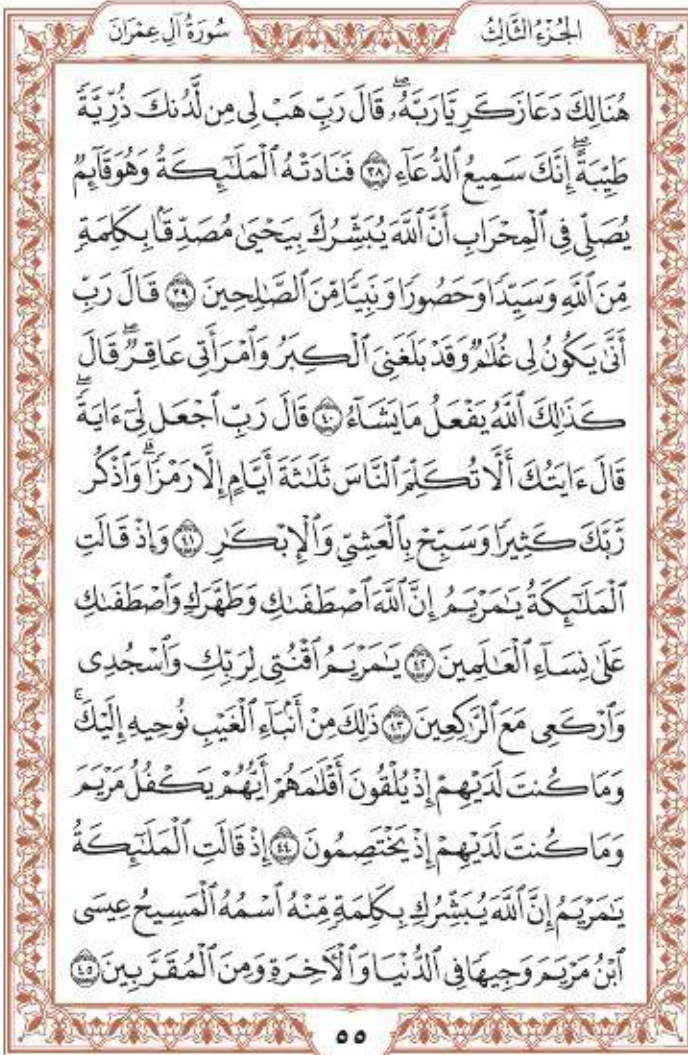 سُورَةُ آلِ عِمْرَانَ
الجُزْءُ الثَّالِثُ
هُنَالِكَ دَعَا زَكَرِيَّا رَبَّهُۥۖ قَالَ رَبِّ هَبْ لِى مِن لَّدُنكَ ذُرِّيَّةً
طَيِّبَةًۖ إِنَّكَ سَمِيعُ ٱلدُّعَآءِ ٣٨ فَنَادَتْهُ ٱلْمَلَٰٓئِكَةُ وَهُوَ قَآئِمٌ
يُصَلِّى فِى ٱلْمِحْرَابِ أَنَّ ٱللَّهَ يُبَشِّرُكَ بِيَحْيَىٰ مُصَدِّقَۢا بِكَلِمَةٍ
مِّنَ ٱللَّهِ وَسَيِّدًا وَحَصُورًا وَنَبِيًّا مِّنَ ٱلصَّٰلِحِينَ ٣٩ قَالَ رَبِّ
أَنَّىٰ يَكُونُ لِى غُلَٰمٌ وَقَدْ بَلَغَنِىَ ٱلْكِبَرُ وَٱمْرَأَتِى عَاقِرٌۖ قَالَ
كَذَٰلِكَ ٱللَّهُ يَفْعَلُ مَا يَشَآءُ ٤٠ قَالَ رَبِّ ٱجْعَل لِّىٓ ءَايَةًۖ
قَالَ ءَايَتُكَ أَلَّا تُكَلِّمَ ٱلنَّاسَ ثَلَٰثَةَ أَيَّامٍ إِلَّا رَمْزًاۗ وَٱذْكُر
رَّبَّكَ كَثِيرًا وَسَبِّحْ بِٱلْعَشِىِّ وَٱلْإِبْكَٰرِ ٤١ وَإِذْ قَالَتِ
ٱلْمَلَٰٓئِكَةُ يَٰمَرْيَمُ إِنَّ ٱللَّهَ ٱصْطَفَىٰكِ وَطَهَّرَكِ وَٱصْطَفَىٰكِ
عَلَىٰ نِسَآءِ ٱلْعَٰلَمِينَ ٤٢ يَٰمَرْيَمُ ٱقْنُتِى لِرَبِّكِ وَٱسْجُدِى
وَٱرْكَعِى مَعَ ٱلرَّٰكِعِينَ ٤٣ ذَٰلِكَ مِنْ أَنۢبَآءِ ٱلْغَيْبِ نُوحِيهِ إِلَيْكَۚ
وَمَا كُنتَ لَدَيْهِمْ إِذْ يُلْقُونَ أَقْلَٰمَهُمْ أَيُّهُمْ يَكْفُلُ مَرْيَمَ
وَمَا كُنتَ لَدَيْهِمْ إِذْ يَخْتَصِمُونَ ٤٤ إِذْ قَالَتِ ٱلْمَلَٰٓئِكَةُ
يَٰمَرْيَمُ إِنَّ ٱللَّهَ يُبَشِّرُكِ بِكَلِمَةٍ مِّنْهُ ٱسْمُهُ ٱلْمَسِيحُ عِيسَى
ٱبْنُ مَرْيَمَ وَجِيهًا فِى ٱلدُّنْيَا وَٱلْءَاخِرَةِ وَمِنَ ٱلْمُقَرَّبِينَ ٤٥
٥٥